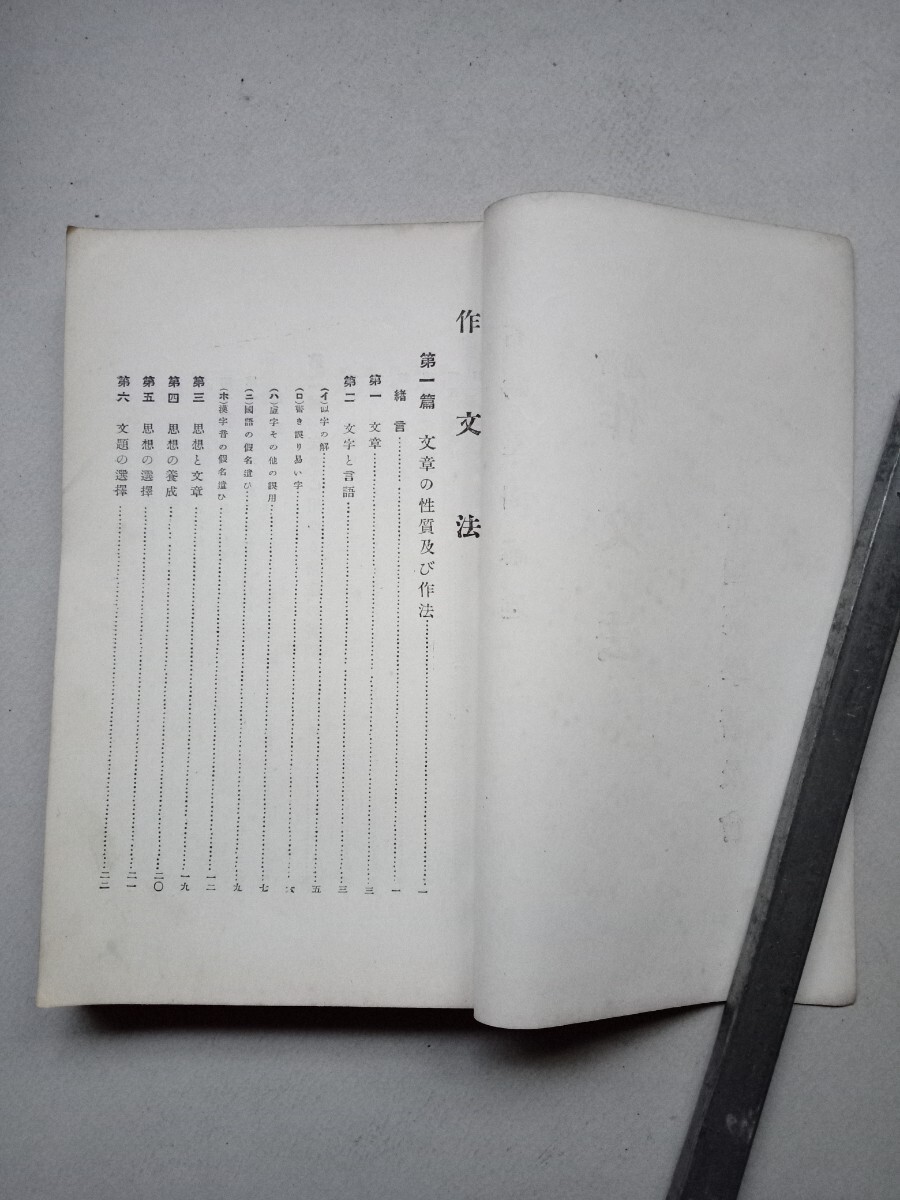 作文法
第一篇 文章の性質及び作法……一
緒言……一
第一 文章……三
第二 文字と言語……三
(イ)似字の解……五
(ロ)書き誤り易い字……六
(ハ)虛字その他の誤用……七
(ニ)國語の假名遣ひ……九
(ホ)漢字音の假名遣ひ……一二
第三 思想と文章……一九
第四 思想の養成……二〇
第五 思想の選擇……二一
第六 文題の選擇……二二